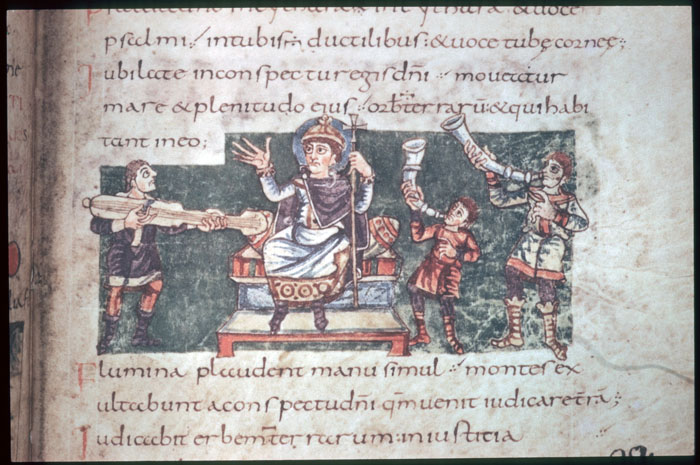 psalmi / in tubis ductilibus : & voce tubę corneę ;
Iubilate in conspectu regis dn̄i ·/ moveatur
mare & plenitudo eius ·/ orb terrarū & qui habi
tant in eo ;
Flumina plaudent manu simul ·/ montes ex
ultabunt a conspectu dn̄i qm̄ venit iudicare trā ;
Iudicabit orbem terrarum in iustitia